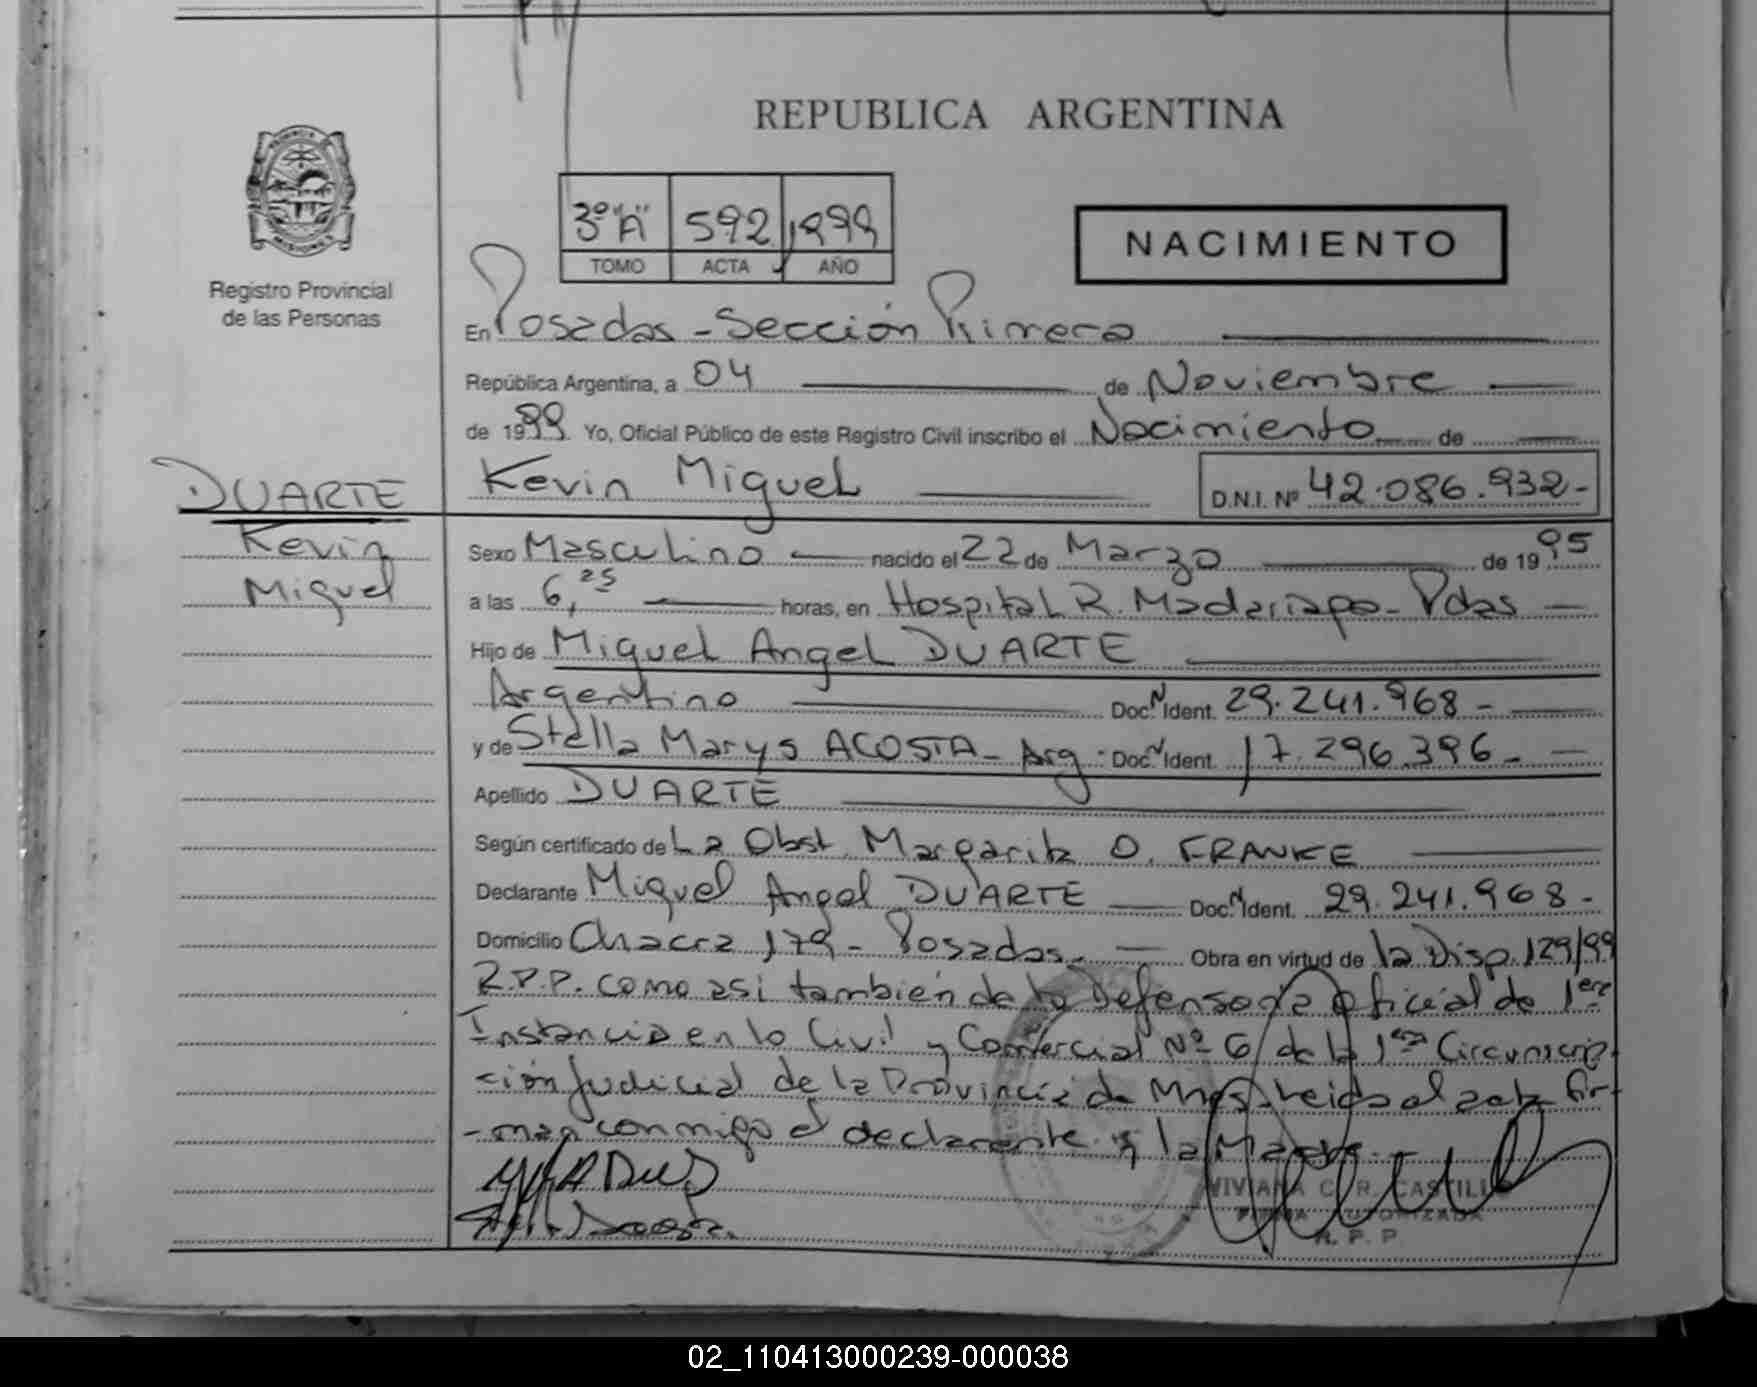 REPUBLICA ARGENTINA
PROVINCIA
MISIONES
Registro Provincial
de las Personas
3º "A" 592 1999
TOMO ACTA AÑO
NACIMIENTO
En Posadas - Sección Primera
República Argentina, a 04 de Noviembre
de 1999 Yo, Oficial Público de este Registro Civil inscribo el Nacimiento de
DUARTE
Kevin
Miguel
Kevin Miguel D.N.I. Nº 42.086.932-
Sexo Masculino nacido el 22 de Marzo de 1995
a las 6,25 horas, en Hospital R. Madariaga - Pdas
Hijo de Miguel Angel DUARTE
Argentino Doc. N Ident. 29.241.968 -
y de Stella Marys ACOSTA - Arg. Doc. N Ident. 17.296.396 -
Apellido DUARTE
Según certificado de La Obst. Margarita O. FRANKE
Declarante Miguel Angel DUARTE Doc. N Ident. 29.241.968 -
Domicilio Chacra 179 - Posadas. Obra en virtud de la Disp. 129/99
R.P.P. como asi también de la Defensoria oficial de 1era
Instancia en lo Civil y Comercial Nº 6 de la 1era Circunscrip-
-ción Judicial de la Provincia de Mnes. leida el acta fir-
-man conmigo el declarante y la Madre. -
VIVIANA C. R. CASTILLO
FIRMA AUTORIZADA
R. P. P.
02_110413000239-000038